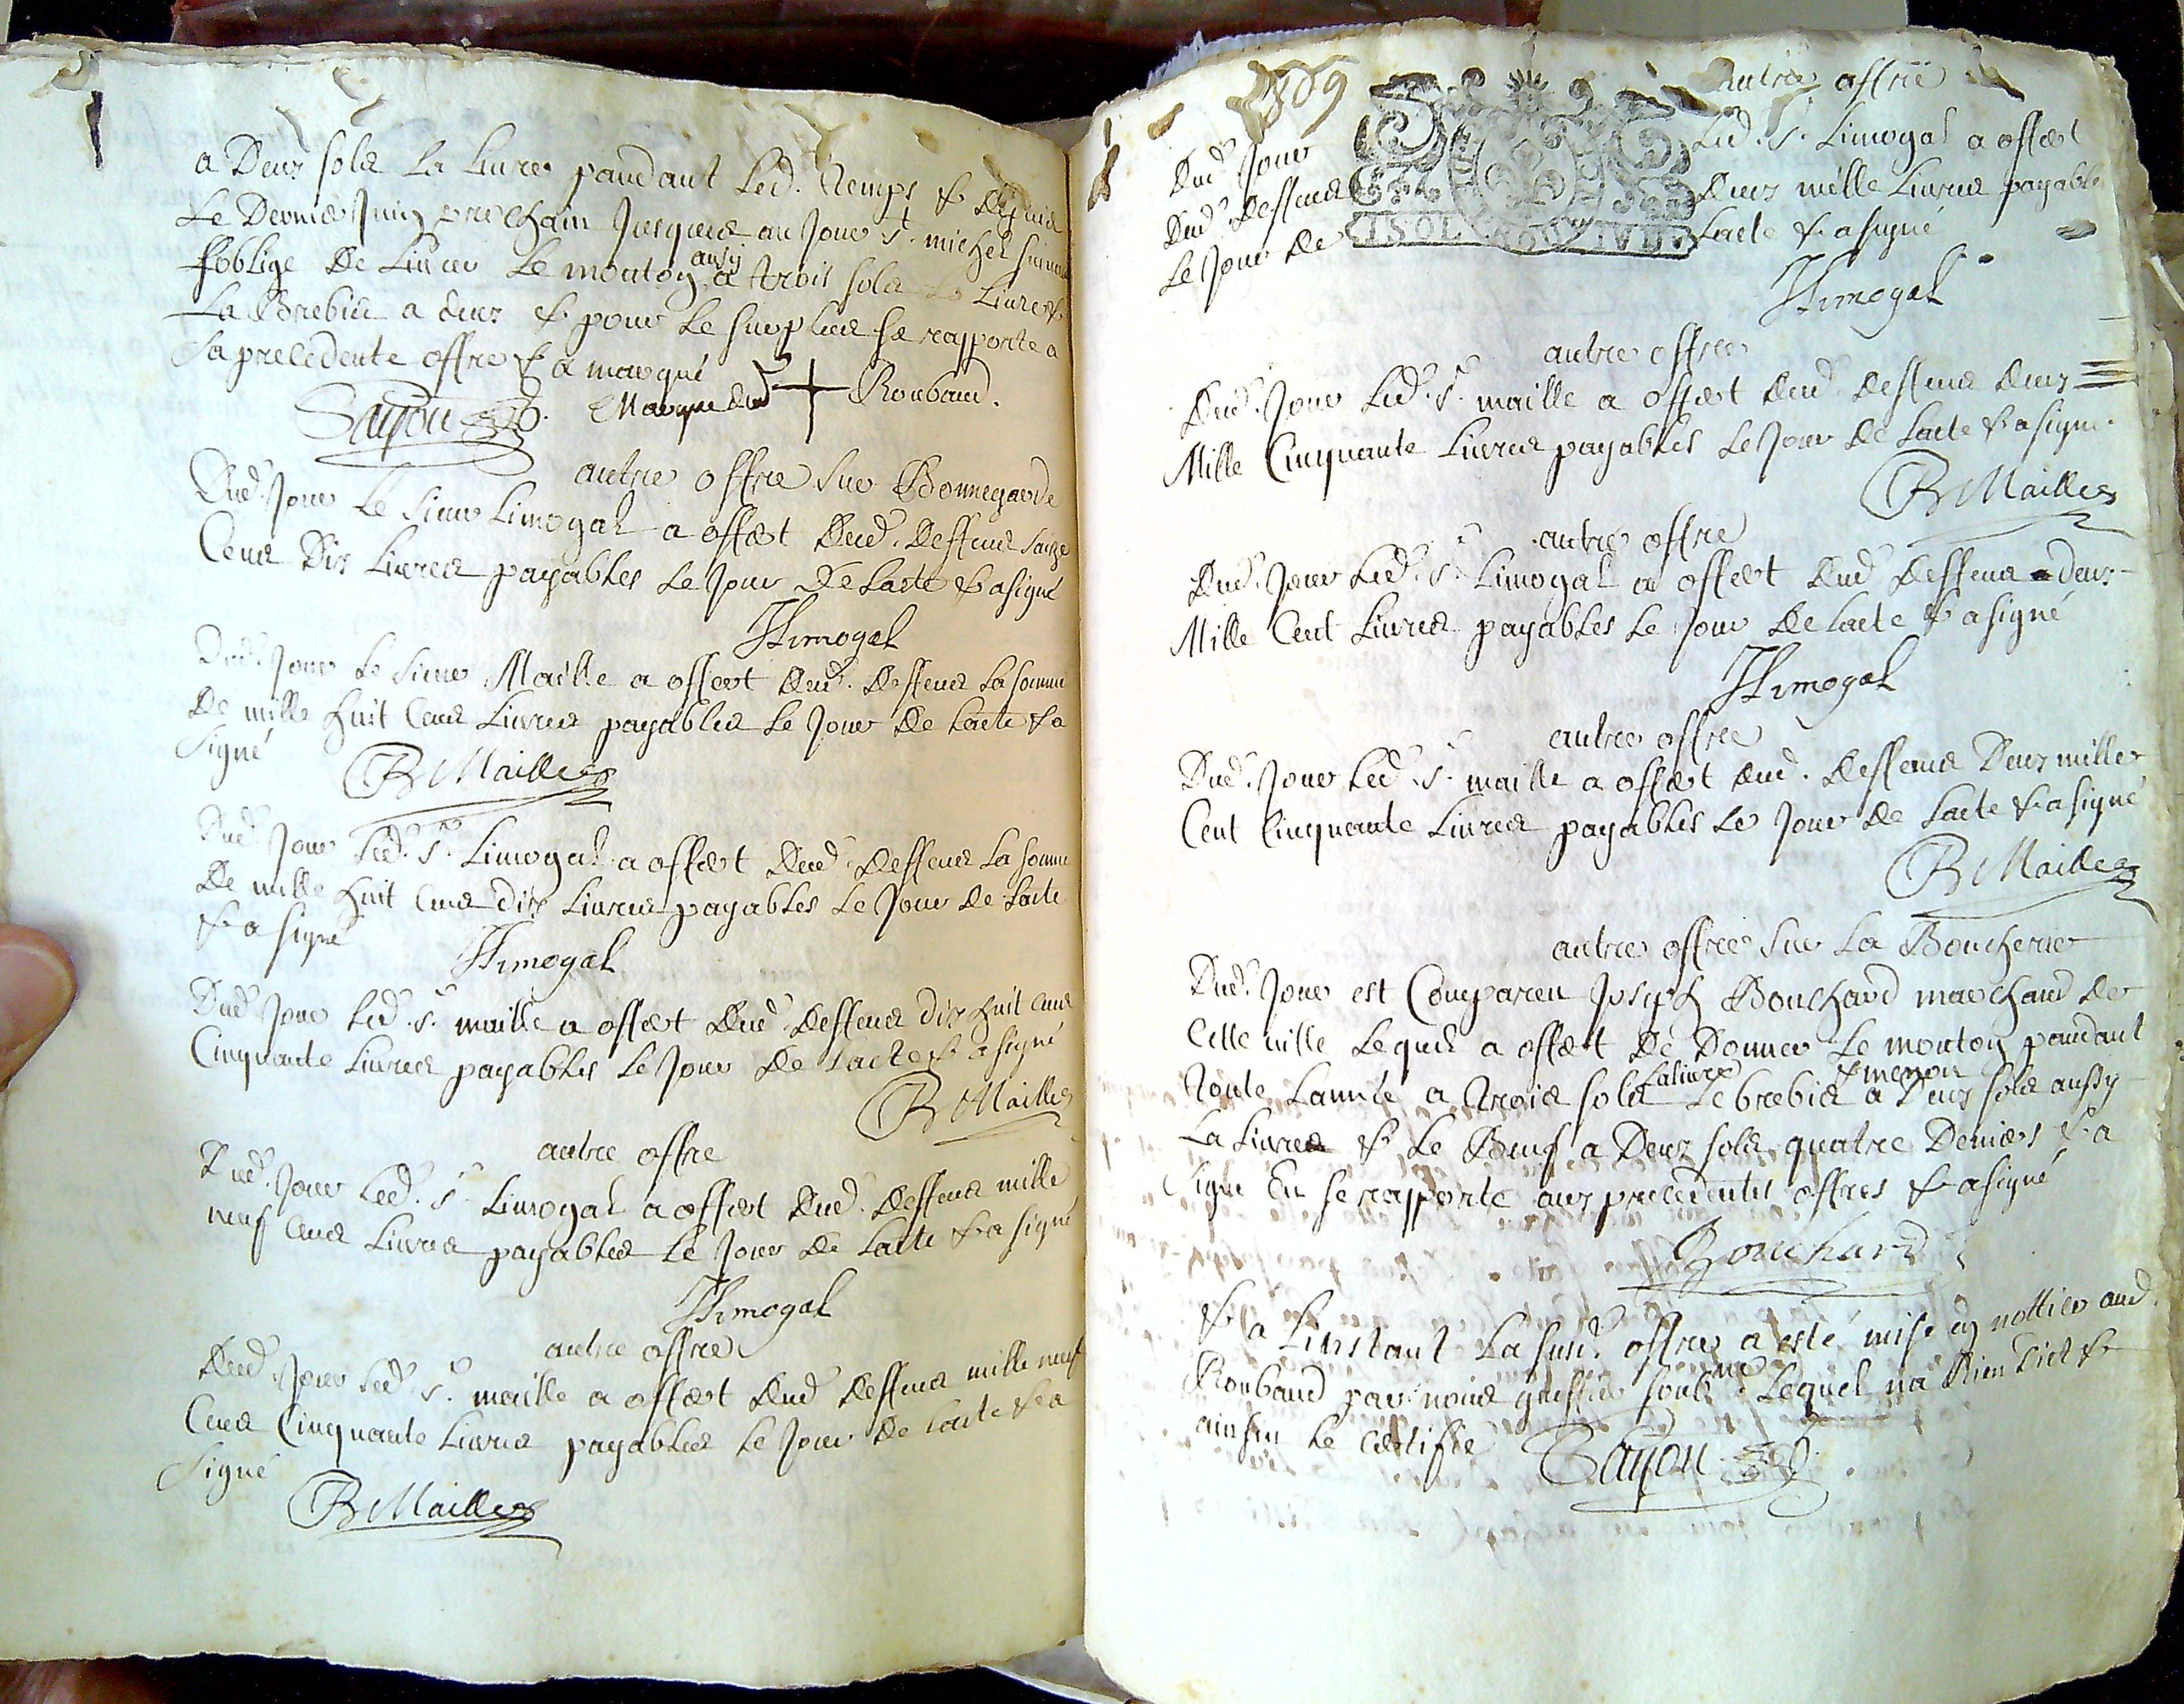 a Deux sols La Livre pandant led. Temps & Depuis
Le Dernier Juin prochain Jusques au Jour St. michel suivant
soblige De Livrer Le mouton ausy a trois sols La Livre &
La Brebis a deux & pour Le surplus se rapporte a
sa precedente offre & a marqué
Sayou Marque dud + Roubaud.
autre offre sur Bonnegarde
Dud. Jour le sieur Limogal a offert dud. Deffens saize
Cens Dix Livres payables le Jour De Lacte & a signé
JLimogal
Dud. Jour le sieur Maille a offert dud. Deffens la somme
De mille huit Cens Livres payables le Jour De Lacte & a
signé
B Maille
Dud. Jour Led. Sr. Limogal a offert Dud. Deffens la somme
De mille huit Cens dix Livres payables Le Jour de Lacte
& a signé
JLimogal
Dud. Jour Led. Sr. maille a offert Dud. Deffens dix huit Cens
Cinquante Livres payables le Jour de Lacte & a signé
B Maille
autre offre
Dud. Jour Led. Sr. Limogal a offert Dud. Deffens mille
neuf Cens Livres payables Le Jour De Lacte & a signé
JLimogal
autre offre
Dud. Jour Led. Sr. maille a offert Dud. Deffens mille neuf
Cens Cinquante Livres payables le Jour De Lacte & a
signé
B Maille
autre offre
Dud. Jour Led. Sr. Limogal a offert
Dud. Deffens Deux mille Livres payables
Le Jour De Lacte & a signé
JLimogal
autre offre
Dud. Jour Led. Sr. maille a offert dud. Deffens deux
Mille Cinquante Livres payables Le Jour De Lacte & a signé
B Maille
autre offre
Dud. Jour Led. Sr. Limogal a offert Dud. Deffens deux
Mille Cent Livres payables Le Jour De Lacte & a signé
JLimogal
autre offre
Dud. Jour Led. Sr. maille a offert Dud. Deffens Deux mille
Cent Cinquante Livres payables Le Jour de Lacte & a signé
B Maille
autre offre sur La Boucherie
Dud. Jour est Compareu Joseph Bouchard marchand de
Cette ville Lequel a offert De Donner Le mouton pandant
Toute Lannée a trois sols La livre Le brebis & menon a Deux sols aussy
La Livre & Le Bœuf a Deux sols quatre Deniers & a
signé En se rapporte aux precedentes offres & a signé
Bouchard
& a Linstant La susd. offre a esté mise en nottice aud.
Roubaud par nous greffier soubsne. Lequel na Rien Dict &
ainsin le Certifie Sayou